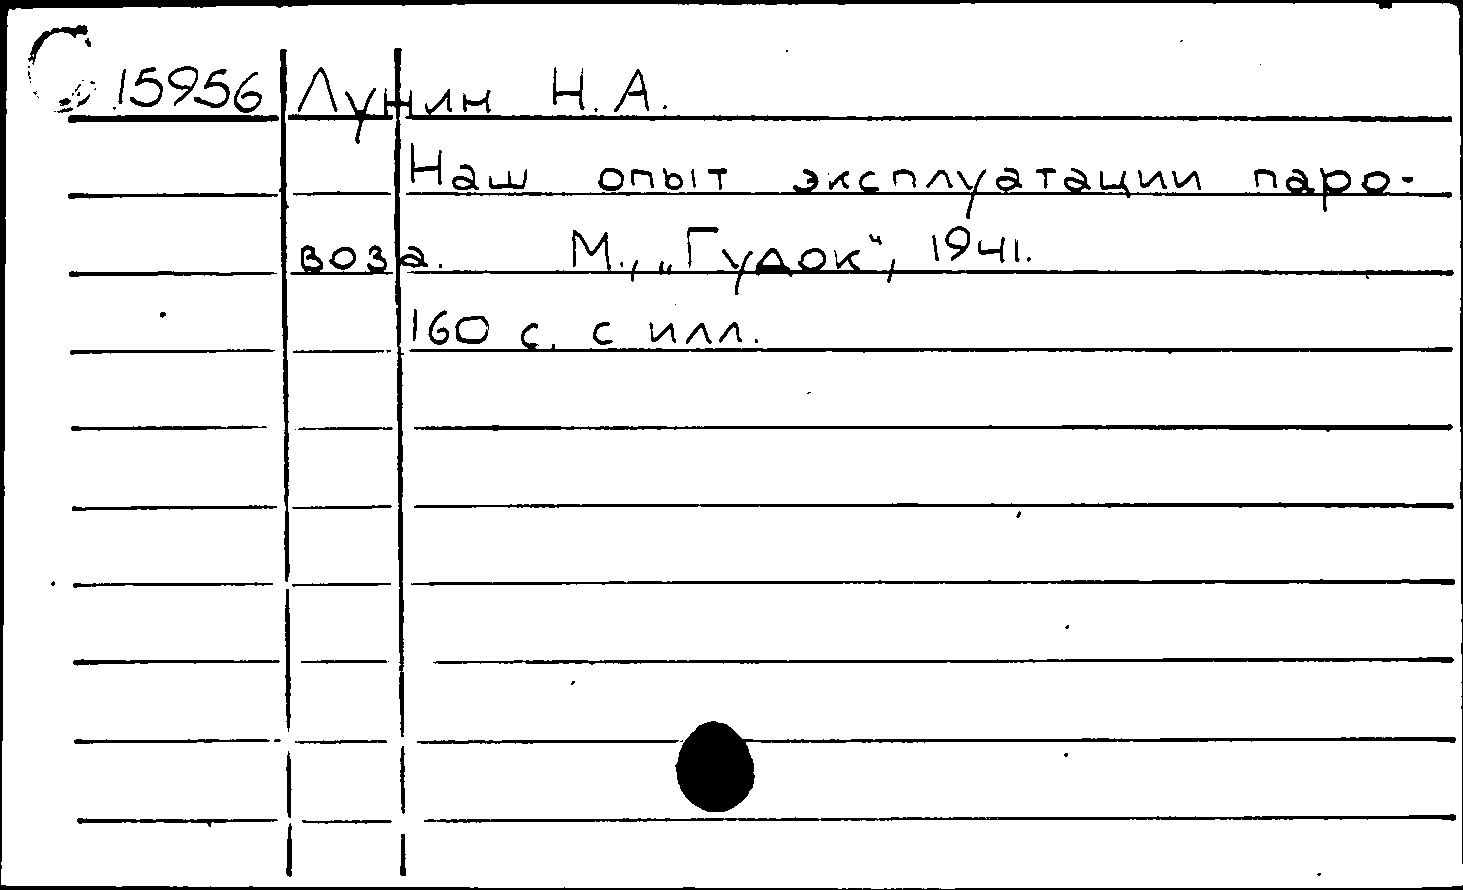 15956 Лунин Н. А.
Наш опыт эксплуатации паро-
воза. М., „Гудок“, 1941.
160 с. с илл.